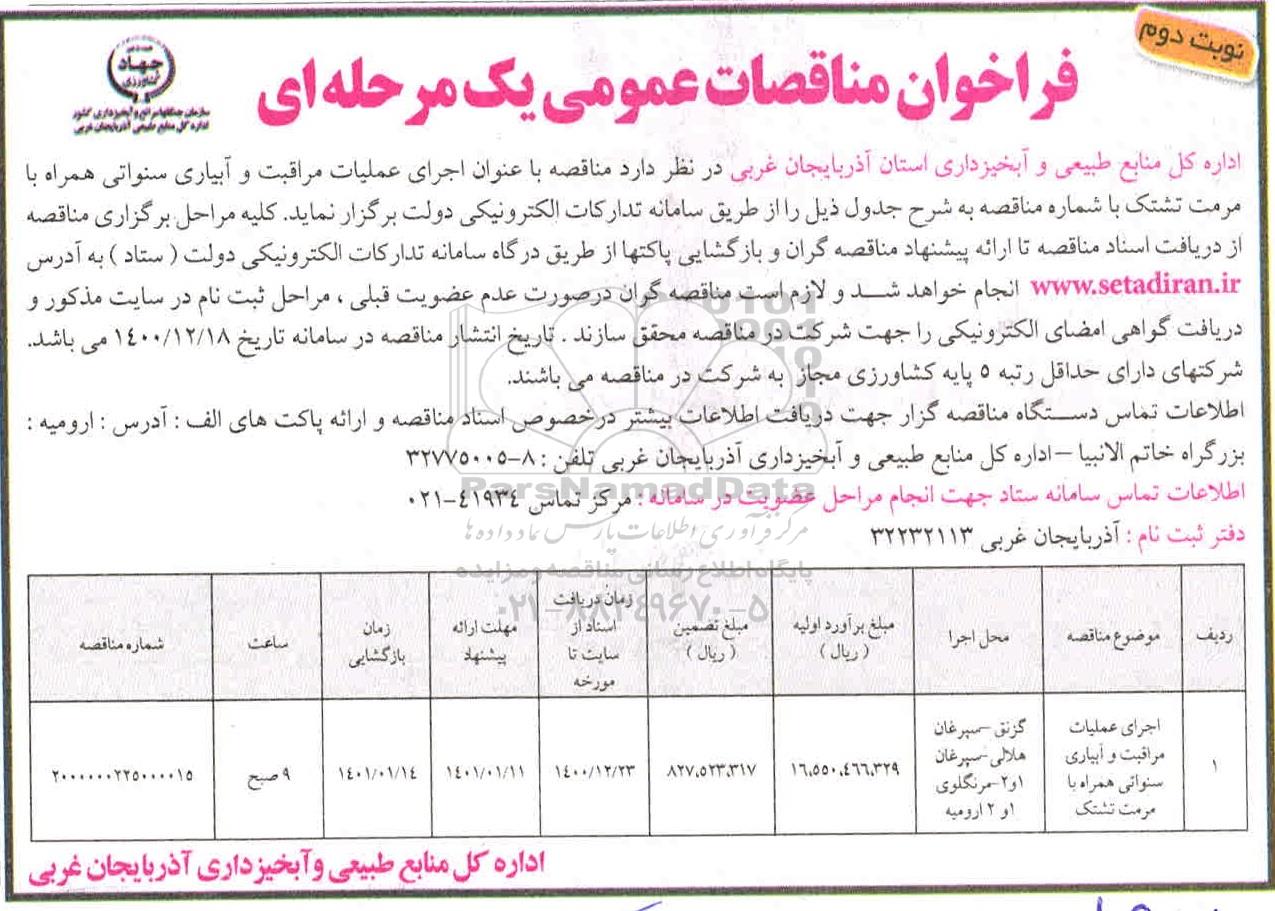 نوبت دوم
جهاد
کشاورزی
سازمان جنگلها، مراتع و آبخیزداری کشور
اداره کل منابع طبیعی آذربایجان غربی
فراخوان مناقصات عمومی یک مرحله ای
اداره کل منابع طبیعی و آبخیزداری استان آذربایجان غربی در نظر دارد مناقصه با عنوان اجرای عملیات مراقبت و آبیاری سنواتی همراه با
مرمت تشتک با شماره مناقصه به شرح جدول ذیل را از طریق سامانه تدارکات الکترونیکی دولت برگزار نماید. کلیه مراحل برگزاری مناقصه
از دریافت اسناد مناقصه تا ارائه پیشنهاد مناقصه گران و بازگشایی پاکتها از طریق درگاه سامانه تدارکات الکترونیکی دولت ( ستاد ) به آدرس
www.setadiran.ir انجام خواهد شد و لازم است مناقصه گران درصورت عدم عضویت قبلی ، مراحل ثبت نام در سایت مذکور و
دریافت گواهی امضای الکترونیکی را جهت شرکت در مناقصه محقق سازند . تاریخ انتشار مناقصه در سامانه تاریخ ۱۴۰۰/۱۲/۱۸ می باشد.
شرکتهای دارای حداقل رتبه ۵ پایه کشاورزی مجاز به شرکت در مناقصه می باشند.
اطلاعات تماس دستگاه مناقصه گزار جهت دریافت اطلاعات بیشتر درخصوص اسناد مناقصه و ارائه پاکت های الف : آدرس : ارومیه :
بزرگراه خاتم الانبیا – اداره کل منابع طبیعی و آبخیزداری آذربایجان غربی تلفن : ۸-۳۲۷۷۵۰۰۵
اطلاعات تماس سامانه ستاد جهت انجام مراحل عضویت در سامانه : مرکز تماس ۴۱۹۳۴-۰۲۱
دفتر ثبت نام : آذربایجان غربی ۳۲۲۳۲۱۱۳
ParsNamadData
مرکز فرآوری اطلاعات پارس نماد داده ها
پایگاه اطلاع رسانی مناقصه و مزایده
۰۲۱-۸۸۳۴۹۶۷۰-۵
ردیف
موضوع مناقصه
محل اجرا
مبلغ برآورد اولیه
( ریال )
مبلغ تضمین
( ریال )
زمان دریافت
اسناد از
سایت تا
مورخه
مهلت ارائه
پیشنهاد
زمان
بازگشایی
ساعت
شماره مناقصه
۱
اجرای عملیات
مراقبت و آبیاری
سنواتی همراه با
مرمت تشتک
گزنق –سپرغان
هلالی–سپرغان
۱و۲–مرنگلوی
۱و ۲ ارومیه
۱۶،۵۵۰،۴۶۶،۳۲۹
۸۲۷،۵۲۳،۳۱۷
۱۴۰۰/۱۲/۲۳
۱۴۰۱/۰۱/۱۱
۱۴۰۱/۰۱/۱۴
۹ صبح
۲۰۰۰۰۰۰۲۲۵۰۰۰۰۱۵
اداره کل منابع طبیعی وآبخیزداری آذربایجان غربی